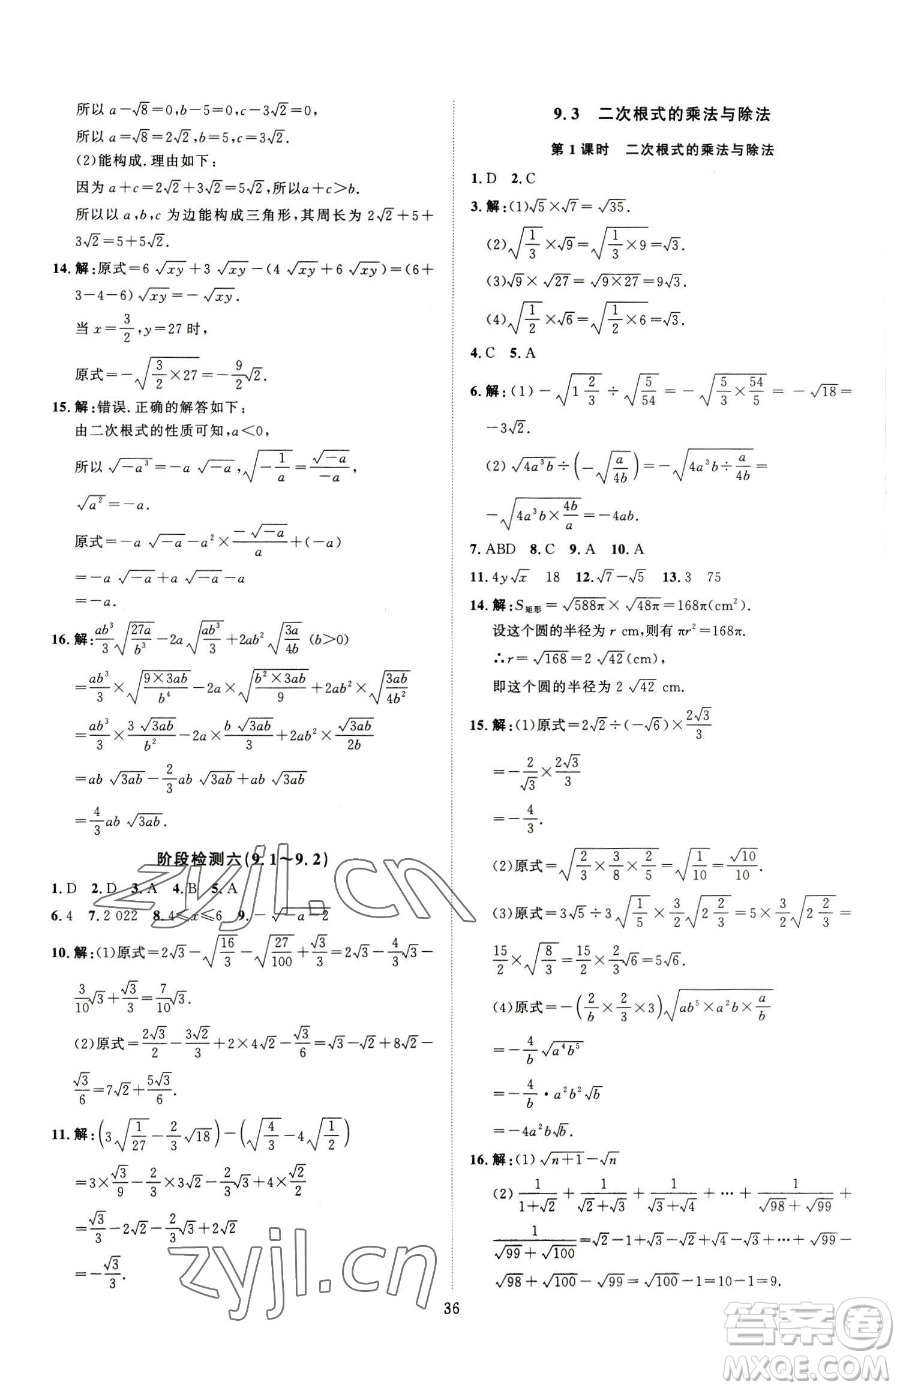 所以 a−√8=0,b−5=0,c−3√2=0,
所以 a=√8=2√2,b=5,c=3√2.
(2)能构成.理由如下:
因为 a+c=2√2+3√2=5√2,所以 a+c>b.
所以以 a,b,c 为边能构成三角形,其周长为 2√2+5+
3√2=5+5√2.
14.解:原式=6√(xy)+3√(xy)−(4√(xy)+6√(xy))=(6+
3−4−6)√(xy)=−√(xy).
当 x=3/2,y=27 时,
原式=−√(3/2×27)=−9/2√2.
15.解:错误.正确的解答如下:
由二次根式的性质可知,a<0,
所以 √(−a³)=−a√(−a),√(−1/a)=√(−a)/(−a),
√(a²)=−a.
原式=−a√(−a)−a²×(−√(−a))/a+(−a)
=−a√(−a)+a√(−a)−a
=−a.
16.解:ab³/3√(27a/b³)−2a√(ab³/3)+2ab√(3a/4b)(b>0)
=ab³/3×√(9×3ab/b⁴)−2a√(b²×3ab/9)+2ab×√(3ab/4b²)
=ab³/3×3√(3ab)/b²−2a×b√(3ab)/3+2ab×√(3ab)/2b
=ab√(3ab)−2/3ab√(3ab)+ab√(3ab)
=4/3ab√(3ab).
阶段检测六(9.1~9.2)
1.D 2.D 3.A 4.B 5.A
6.4 7.2 022 8.4≤x≤6 9.−√(−a−2)
10.解:(1)原式=2√3−√(16/3)−√(27/100)+√3/3=2√3−4/3√3−
3/10√3+√3/3=7/10√3.
(2)原式=2√3/2−3√2/3+2×4√2−√3/6=√3−√2+8√2−
√3/6=7√2+5√3/6.
11.解:(3√(1/27)−2/3√18)−(√(4/3)−4√(1/2))
=3×√3/9−2/3×3√2−2√3/3+4×√2/2
=√3/3−2√2−2√3/3+2√2
=−√3/3.
9.3 二次根式的乘法与除法
第1课时 二次根式的乘法与除法
1.D 2.C
3.解:(1)√5×√7=√35.
(2)√(1/3)×√9=√(1/3×9)=√3.
(3)√9×√27=√(9×27)=9√3.
(4)√(1/2)×√6=√(1/2×6)=√3.
4.C 5.A
6.解:(1)−√(1 2/3)÷√(5/54)=−√(5/3×54/5)=−√18=
−3√2.
(2)√(4a³b)÷(−√(a/4b))=−√(4a³b÷a/4b)=
−√(4a³b×4b/a)=−4ab.
7.ABD 8.C 9.A 10.A
11.4y√x 18 12.√7−√5 13.3 75
14.解:S矩形=√(588π)×√(48π)=168π(cm²).
设这个圆的半径为 r cm,则有 πr²=168π.
∴r=√168=2√42 cm.
即这个圆的半径为 2√42 cm.
15.解:(1)原式=2√2÷(−√6)×2√3/3
=−2/√3×2√3/3
=−4/3.
(2)原式=√(2/3×3/8×2/5)=√(1/10)=√10/10.
(3)原式=3√5÷3√(1/5)×3/2√(2 2/3)=3/2√(5×5×2 2/3)=
15/2×√(8/3)=15/2×2/3√6=5√6.
(4)原式=−(2/b×2/3×3)√(ab⁵×a²b×a/b)
=−4/b√(a⁴b⁵)
=−4/b·a²b²√b
=−4a²b√b.
16.解:(1)√(n+1)−√n
(2)1/(1+√2)+1/(√2+√3)+1/(√3+√4)+…+1/(√98+√99)+
1/(√99+√100)=√2−1+√3−√2+√4−√3+…+√99−
√98+√100−√99=−1+√100=−1+10=9.
36
zyjl.cn
zyjl.cn
答案圈
MXQE.COM